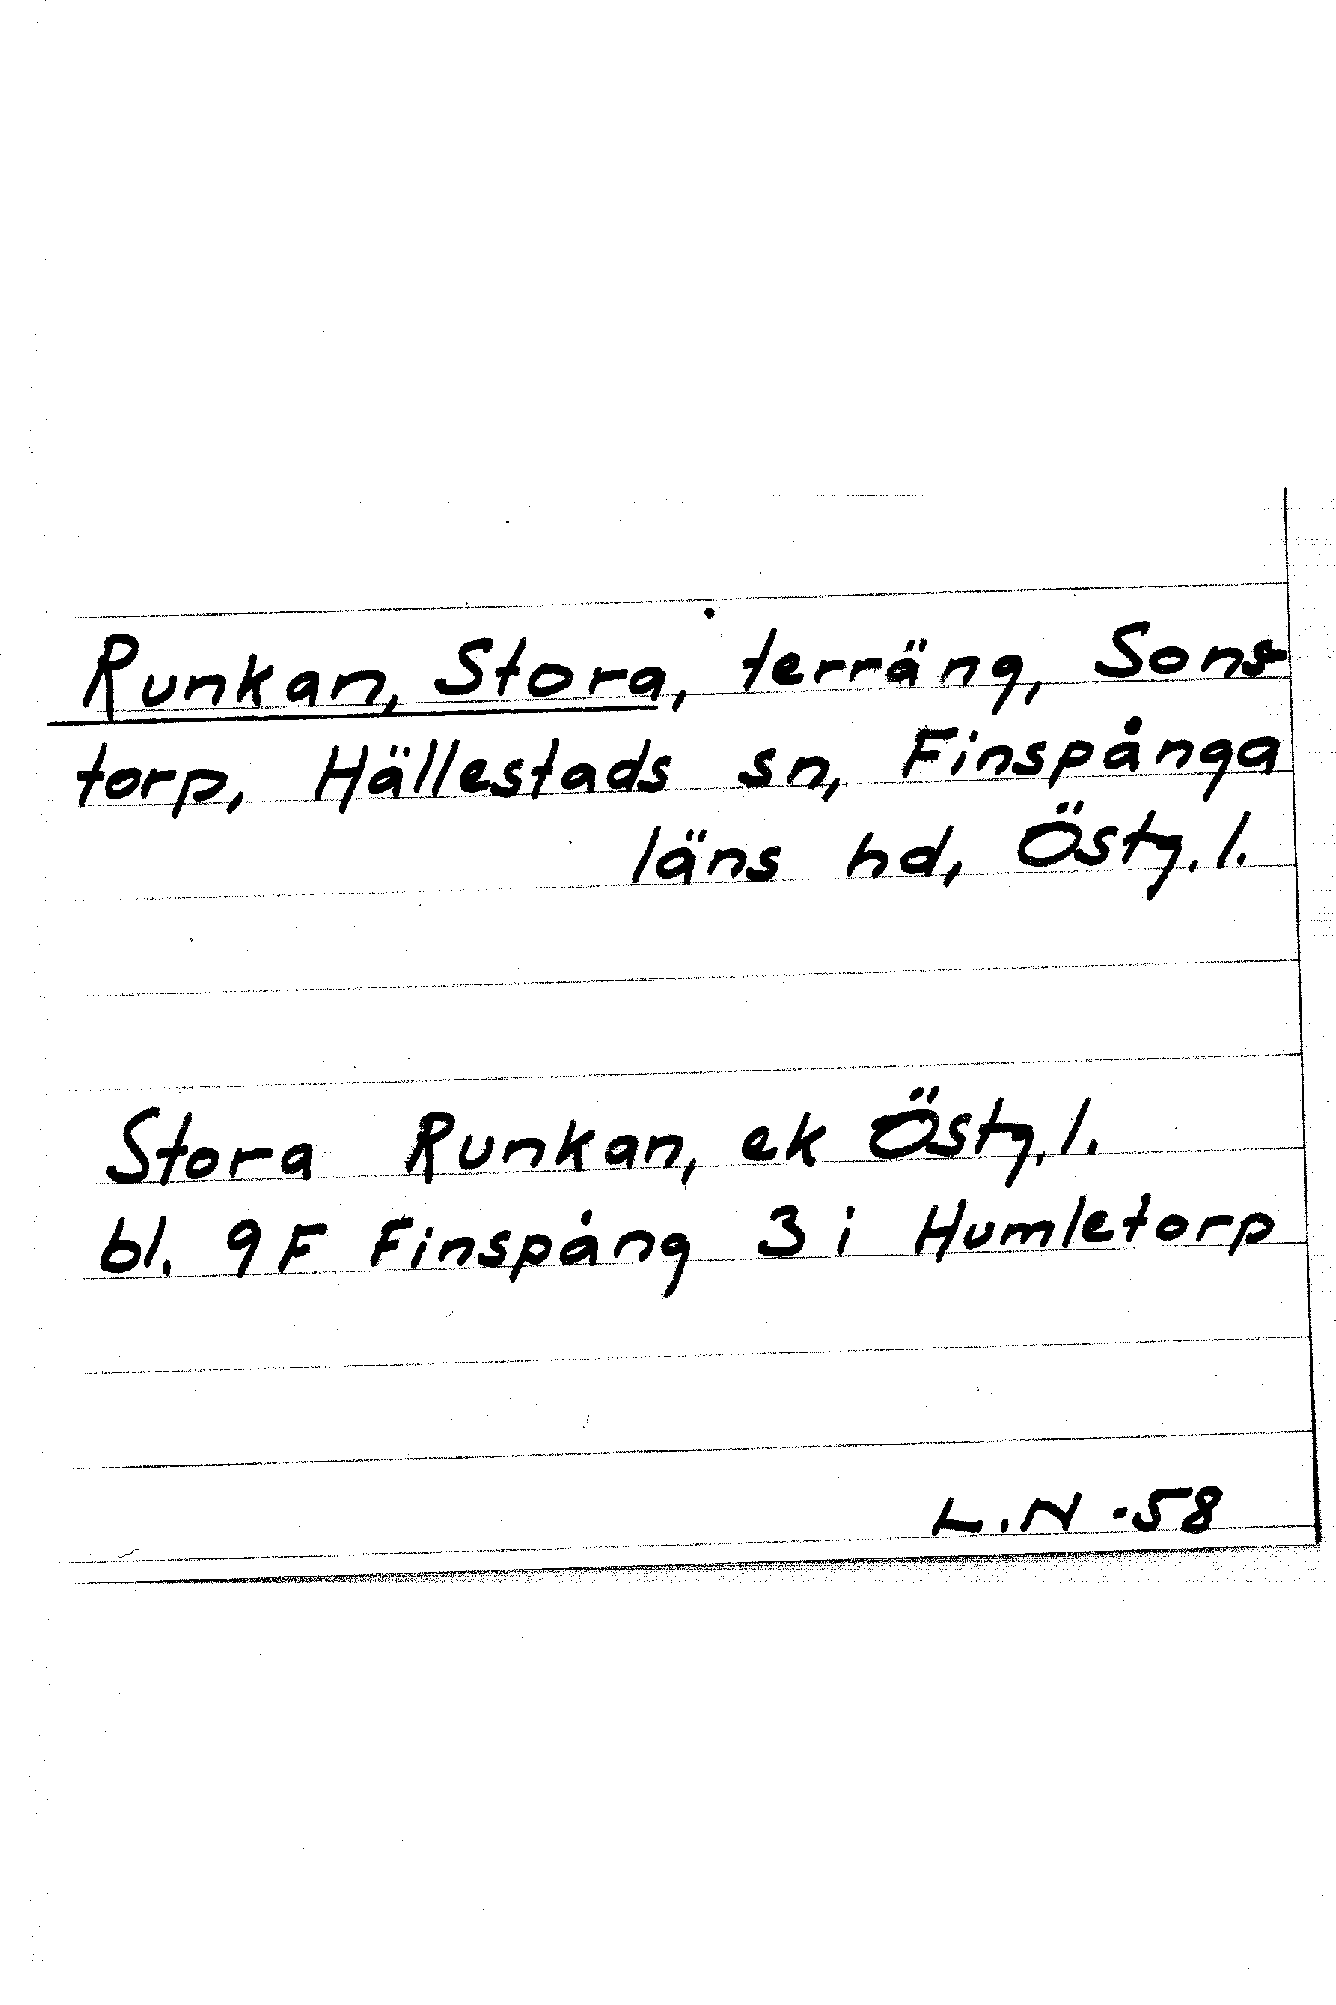 Runkan, Stora, terräng, Sons-
torp, Hällestads sn, Finspånga
läns hd, Östg. l.
Stora Runkan, ek Östg. l.
bl. 9F Finspång 3 i Humletorp
L.N -58